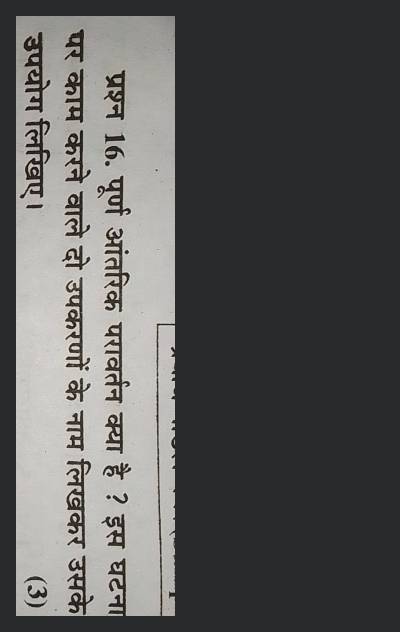 प्रश्न 16. पूर्ण आंतरिक परावर्तन क्या है ? इस घटना
पर काम करने वाले दो उपकरणों के नाम लिखकर उसके
उपयोग लिखिए। (3)